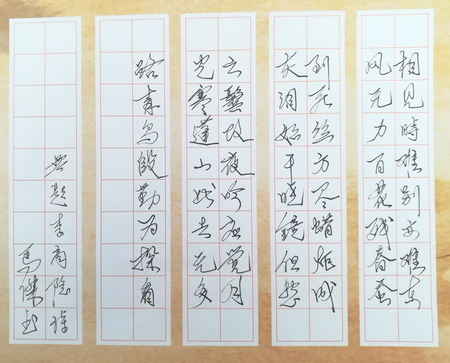 相見時難别亦難東
风无力百花残春蚕
到死丝方尽蜡炬成
灰泪始干曉鏡但愁
云鬓改夜吟应覺月
光寒蓬山此去无多
路青鸟殷勤为探看
無题李商隐诗
馬傑